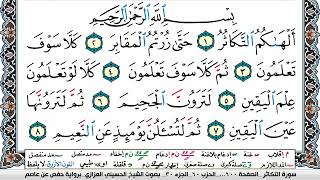 بِسْمِ اللَّهِ الرَّحْمَٰنِ الرَّحِيمِ
أَلْهَاكُمُ التَّكَاثُرُ ١ حَتَّىٰ زُرْتُمُ الْمَقَابِرَ ٢ كَلَّا سَوْفَ
تَعْلَمُونَ ٣ ثُمَّ كَلَّا سَوْفَ تَعْلَمُونَ ٤ كَلَّا لَوْ تَعْلَمُونَ
عِلْمَ الْيَقِينِ ٥ لَتَرَوُنَّ الْجَحِيمَ ٦ ثُمَّ لَتَرَوُنَّهَا
عَيْنَ الْيَقِينِ ٧ ثُمَّ لَتُسْأَلُنَّ يَوْمَئِذٍ عَنِ النَّعِيمِ ٨
سورة التكاثر الصفحة ٦٠٠ الحزب ٦٠ الجزء ٣٠ بصوت الشيخ الحسيني العزازي برواية حفص عن عاصم